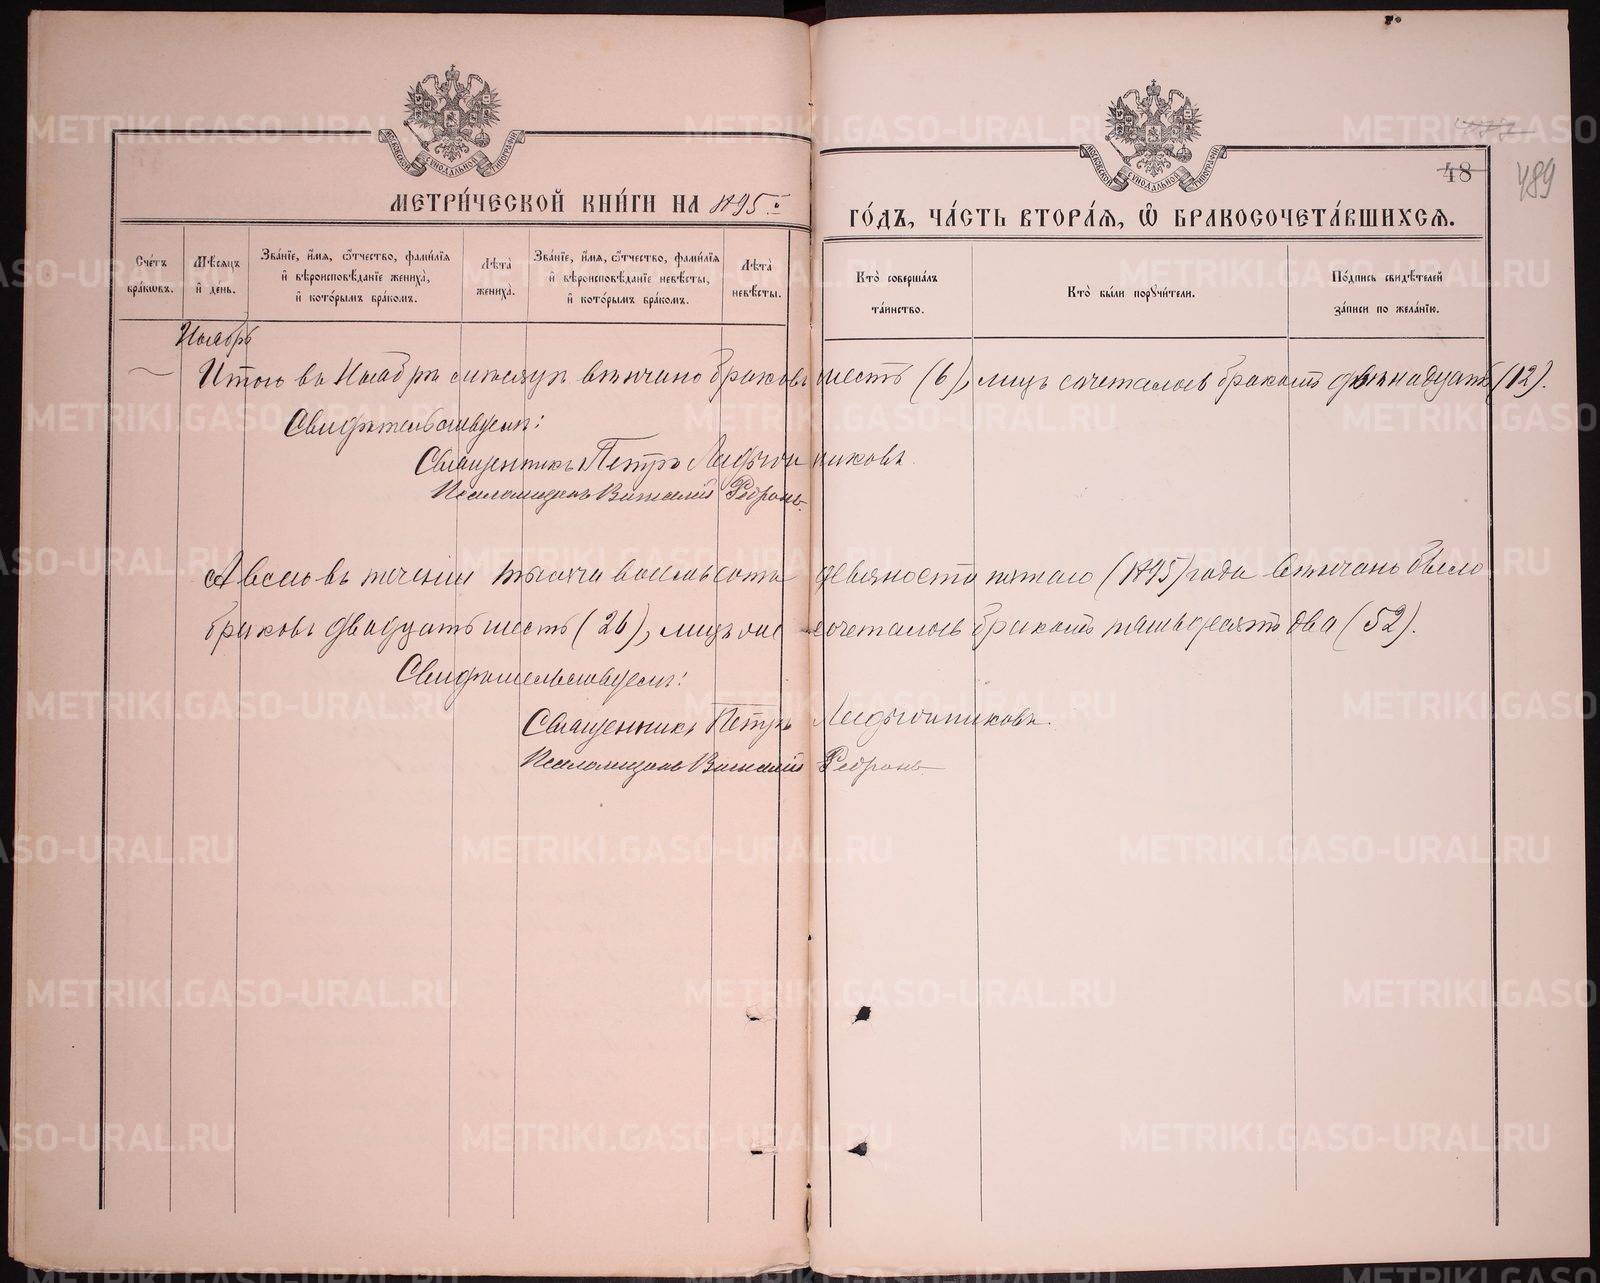 МОСКОВСКОЙ СѴНОДАЛЬНОЙ ТИПОГРАФІИ
МОСКОВСКОЙ СѴНОДАЛЬНОЙ ТИПОГРАФІИ
48
489
МЕТРИ́ЧЕСКОЙ КНИ́ГИ НА 1895й
ГО́ДЪ, ЧА́СТЬ ВТОРА́Ѧ, Ѡ БРАКОСОЧЕТА́ВШИХСѦ.
Сче́тъ бра́ковъ.
Мѣ́сяцъ и҆ де́нь.
Зва́нїе, и҆́мя, ѻ҆́тчество, фами́лїя и҆ вѣроисповѣ́данїе жениха̀, и҆ кото́рымъ бра́комъ.
Лѣ́та жениха̀.
Зва́нїе, и҆́мя, ѻ҆́тчество, фами́лїя и҆ вѣроисповѣ́данїе невѣ́сты, и҆ кото́рымъ бра́комъ.
Лѣ́та невѣ́сты.
Кто̀ соверша́лъ та́инство.
Кто̀ бы́ли порꙋчи́тели.
По́дпись свидѣ́телей за́писи по жела́нїю.
Ноябрь
Итого въ Ноябрѣ мѣсяцѣ вѣнчано браковъ шесть (6), лицъ сочеталось бракомъ двѣнадцать (12).
Свидѣтельствуемъ:
Священникъ Петръ
Псаломщикъ Виталій
А всего въ теченіи тысяча восемьсотъ девяносто пятаго (1895) года вѣнчано было
браковъ двадцать шесть (26), лицъ сочеталось бракомъ пятьдесятъ два (52).
Свидѣтельствуемъ:
Священникъ Петръ
Псаломщикъ Виталій
METRIKI.GASO-URAL.RU